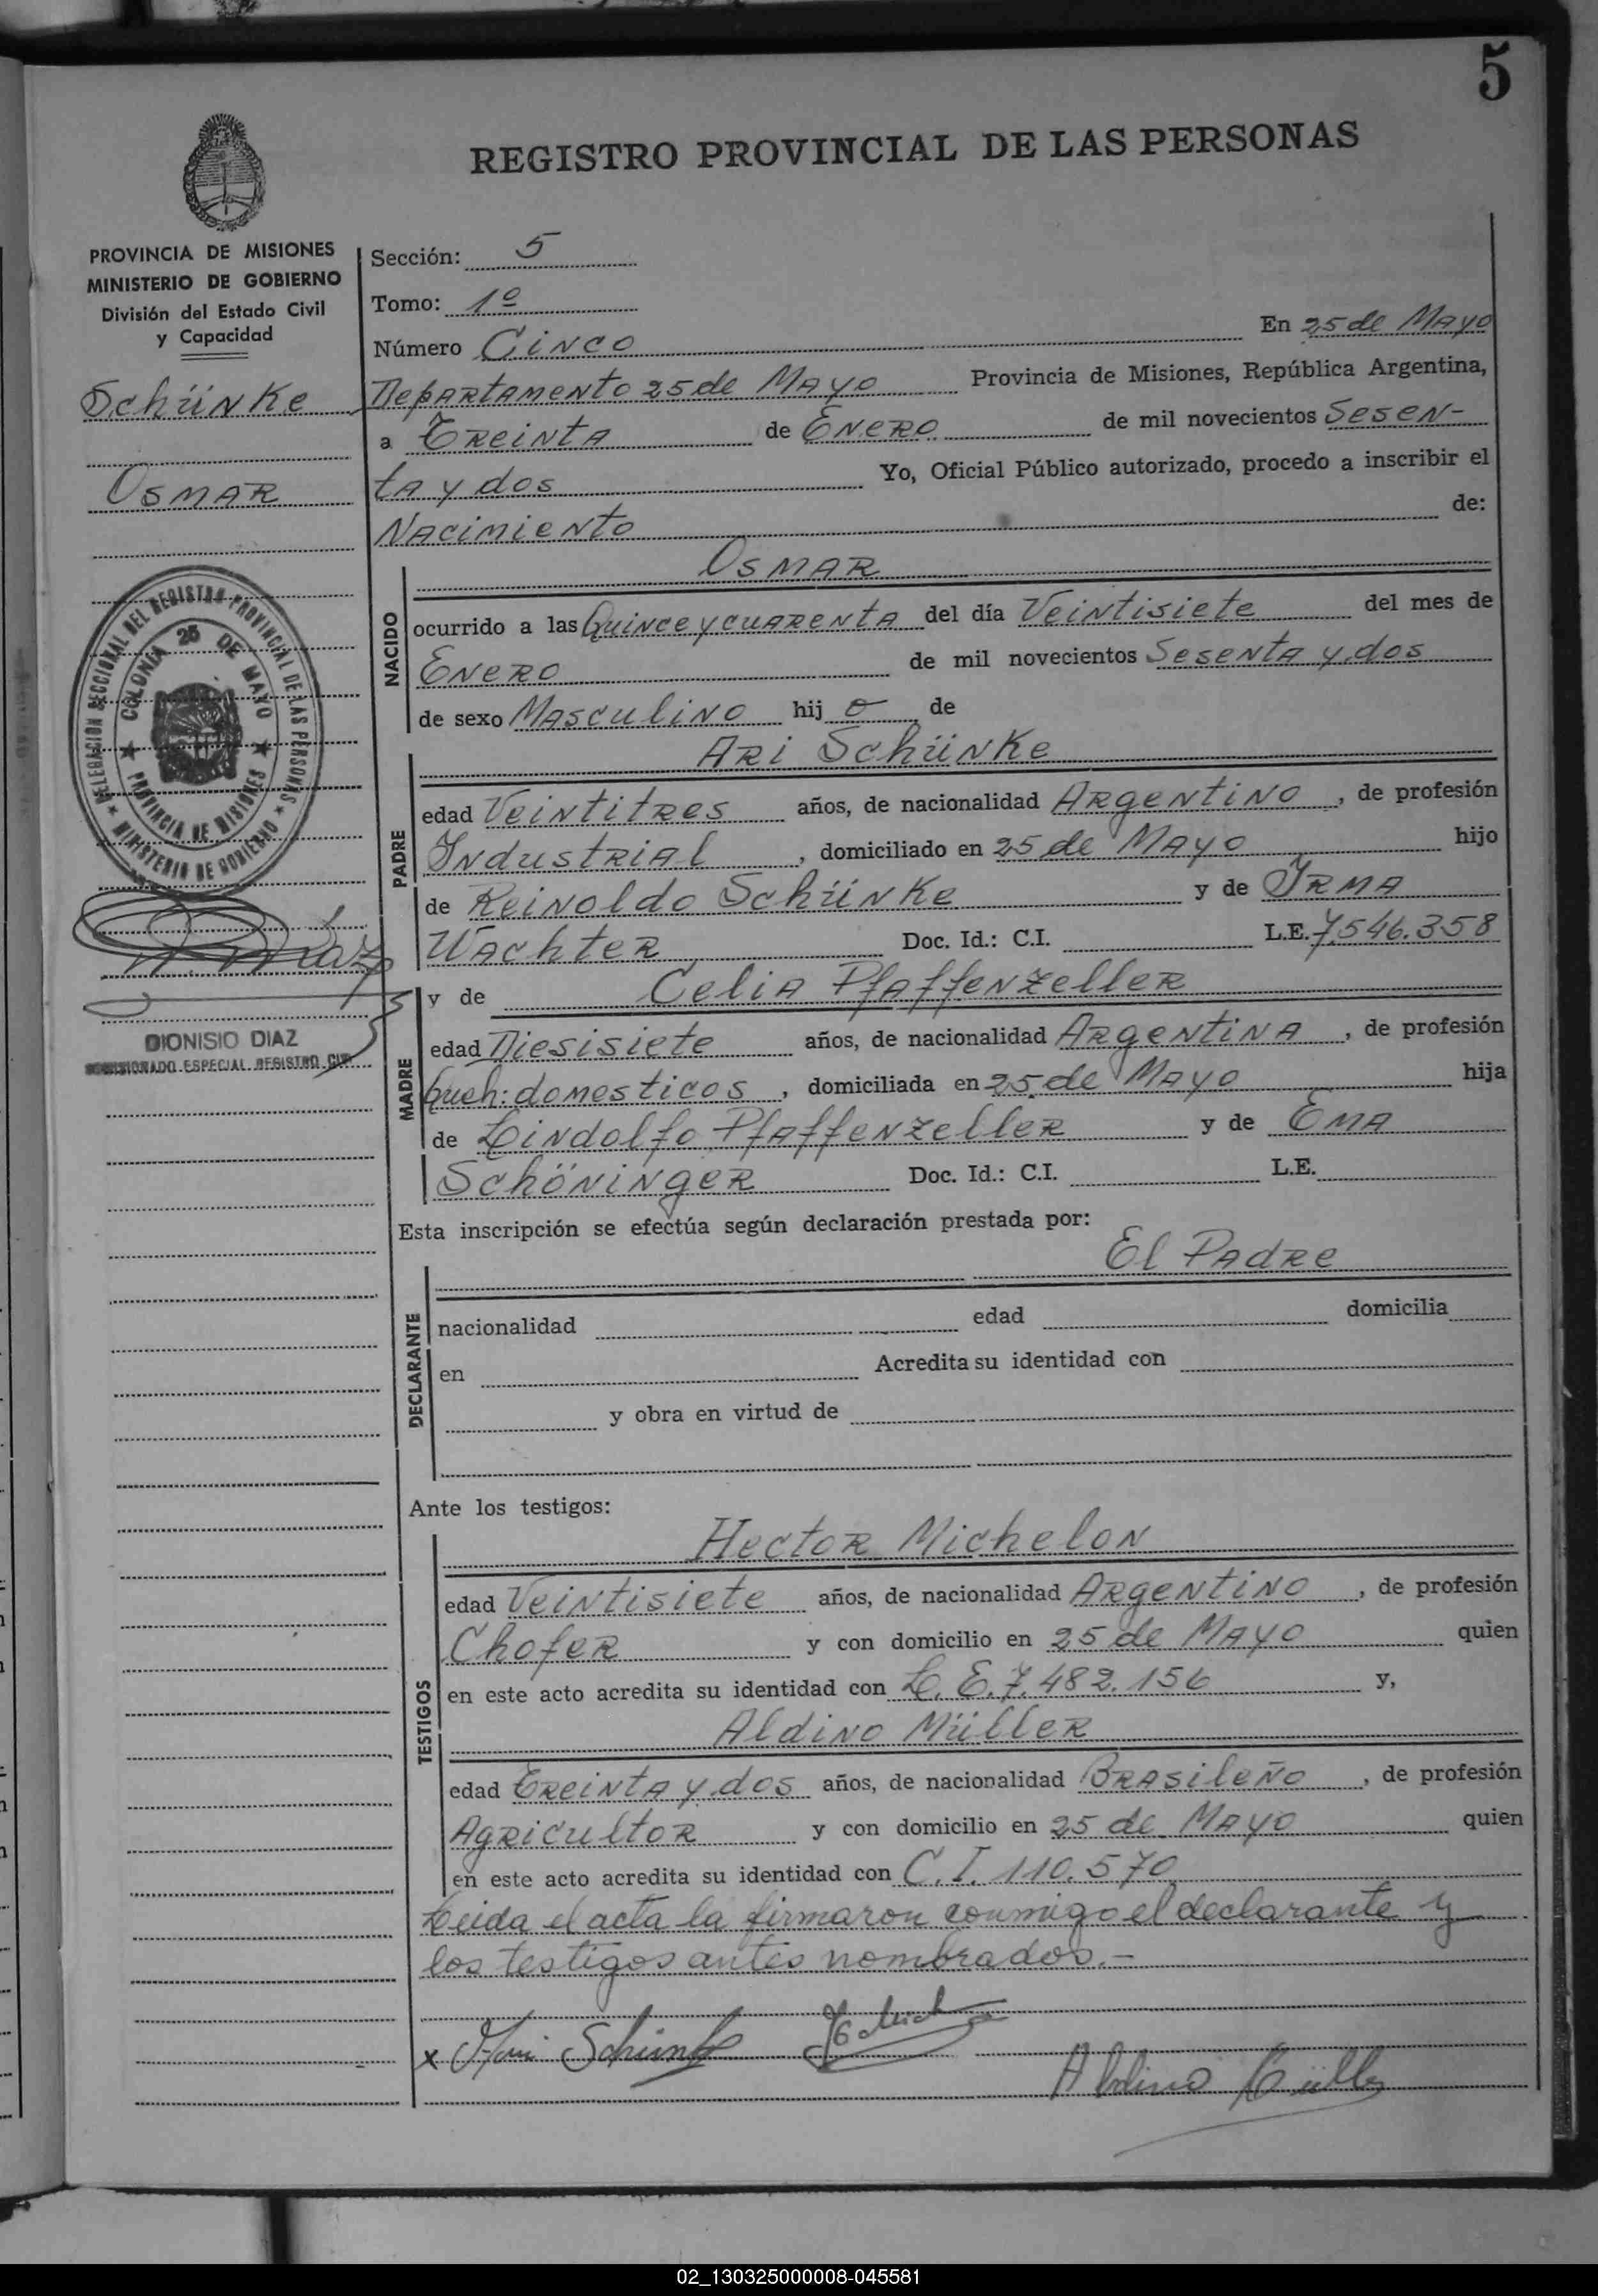 5
REGISTRO PROVINCIAL DE LAS PERSONAS
PROVINCIA DE MISIONES
MINISTERIO DE GOBIERNO
División del Estado Civil
y Capacidad
Schünke
Osmar
DELEGACION SECCIONAL DEL REGISTRO PROVINCIAL DE LAS PERSONAS
★ MINISTERIO DE GOBIERNO ★
COLONIA 25 DE MAYO
★ PROVINCIA DE MISIONES ★
DIONISIO DIAZ
COMISIONADO ESPECIAL REGISTRO CIVIL
Sección: 5
Tomo: 1º
Número Cinco En 25 de Mayo
Departamento 25 de Mayo Provincia de Misiones, República Argentina,
a Treinta de Enero de mil novecientos Sesen-
ta y dos Yo, Oficial Público autorizado, procedo a inscribir el
Nacimiento de:
NACIDO
Osmar
ocurrido a las Quince y cuarenta del día Veintisiete del mes de
Enero de mil novecientos Sesenta y dos
de sexo Masculino hijo de
PADRE
Ari Schünke
edad Veintitres años, de nacionalidad Argentino, de profesión
Industrial, domiciliado en 25 de Mayo hijo
de Reinoldo Schünke y de Irma
Wachter Doc. Id.: C.I. L.E. 7.546.358
MADRE
y de Celia Pfaffenzeller
edad Diesisiete años, de nacionalidad Argentina, de profesión
queh: domesticos, domiciliada en 25 de Mayo hija
de Lindolfo Pfaffenzeller y de Ema
Schöninger Doc. Id.: C.I. L.E.
Esta inscripción se efectúa según declaración prestada por:
DECLARANTE
El Padre
nacionalidad edad domicilia
en Acredita su identidad con
y obra en virtud de
Ante los testigos:
TESTIGOS
Hector Michelon
edad Veintisiete años, de nacionalidad Argentino, de profesión
Chofer y con domicilio en 25 de Mayo quien
en este acto acredita su identidad con L. E. 7.482.156 y,
Aldino Müller
edad Treinta y dos años, de nacionalidad Brasileño, de profesión
Agricultor y con domicilio en 25 de Mayo quien
en este acto acredita su identidad con C. I. 110.570
Leida el acta la firmaron conmigo el declarante y
los testigos antes nombrados.-
x Ari Schünke
Aldino Müller
02_130325000008-045581